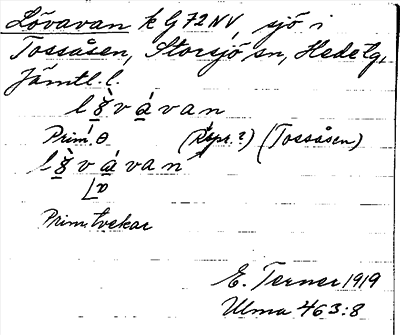 Lövavan k G72NV, sjö i
Tossåsen, Storsjö sn, Hede tg,
Jämtl. l.
l ò̤ v á̱ v a n
Prim. θ (Repr.?) (Tossåsen)
l ò̤ v á̱ v a n
Prim. tvekar
E. Terner 1919
Ulma 463:8